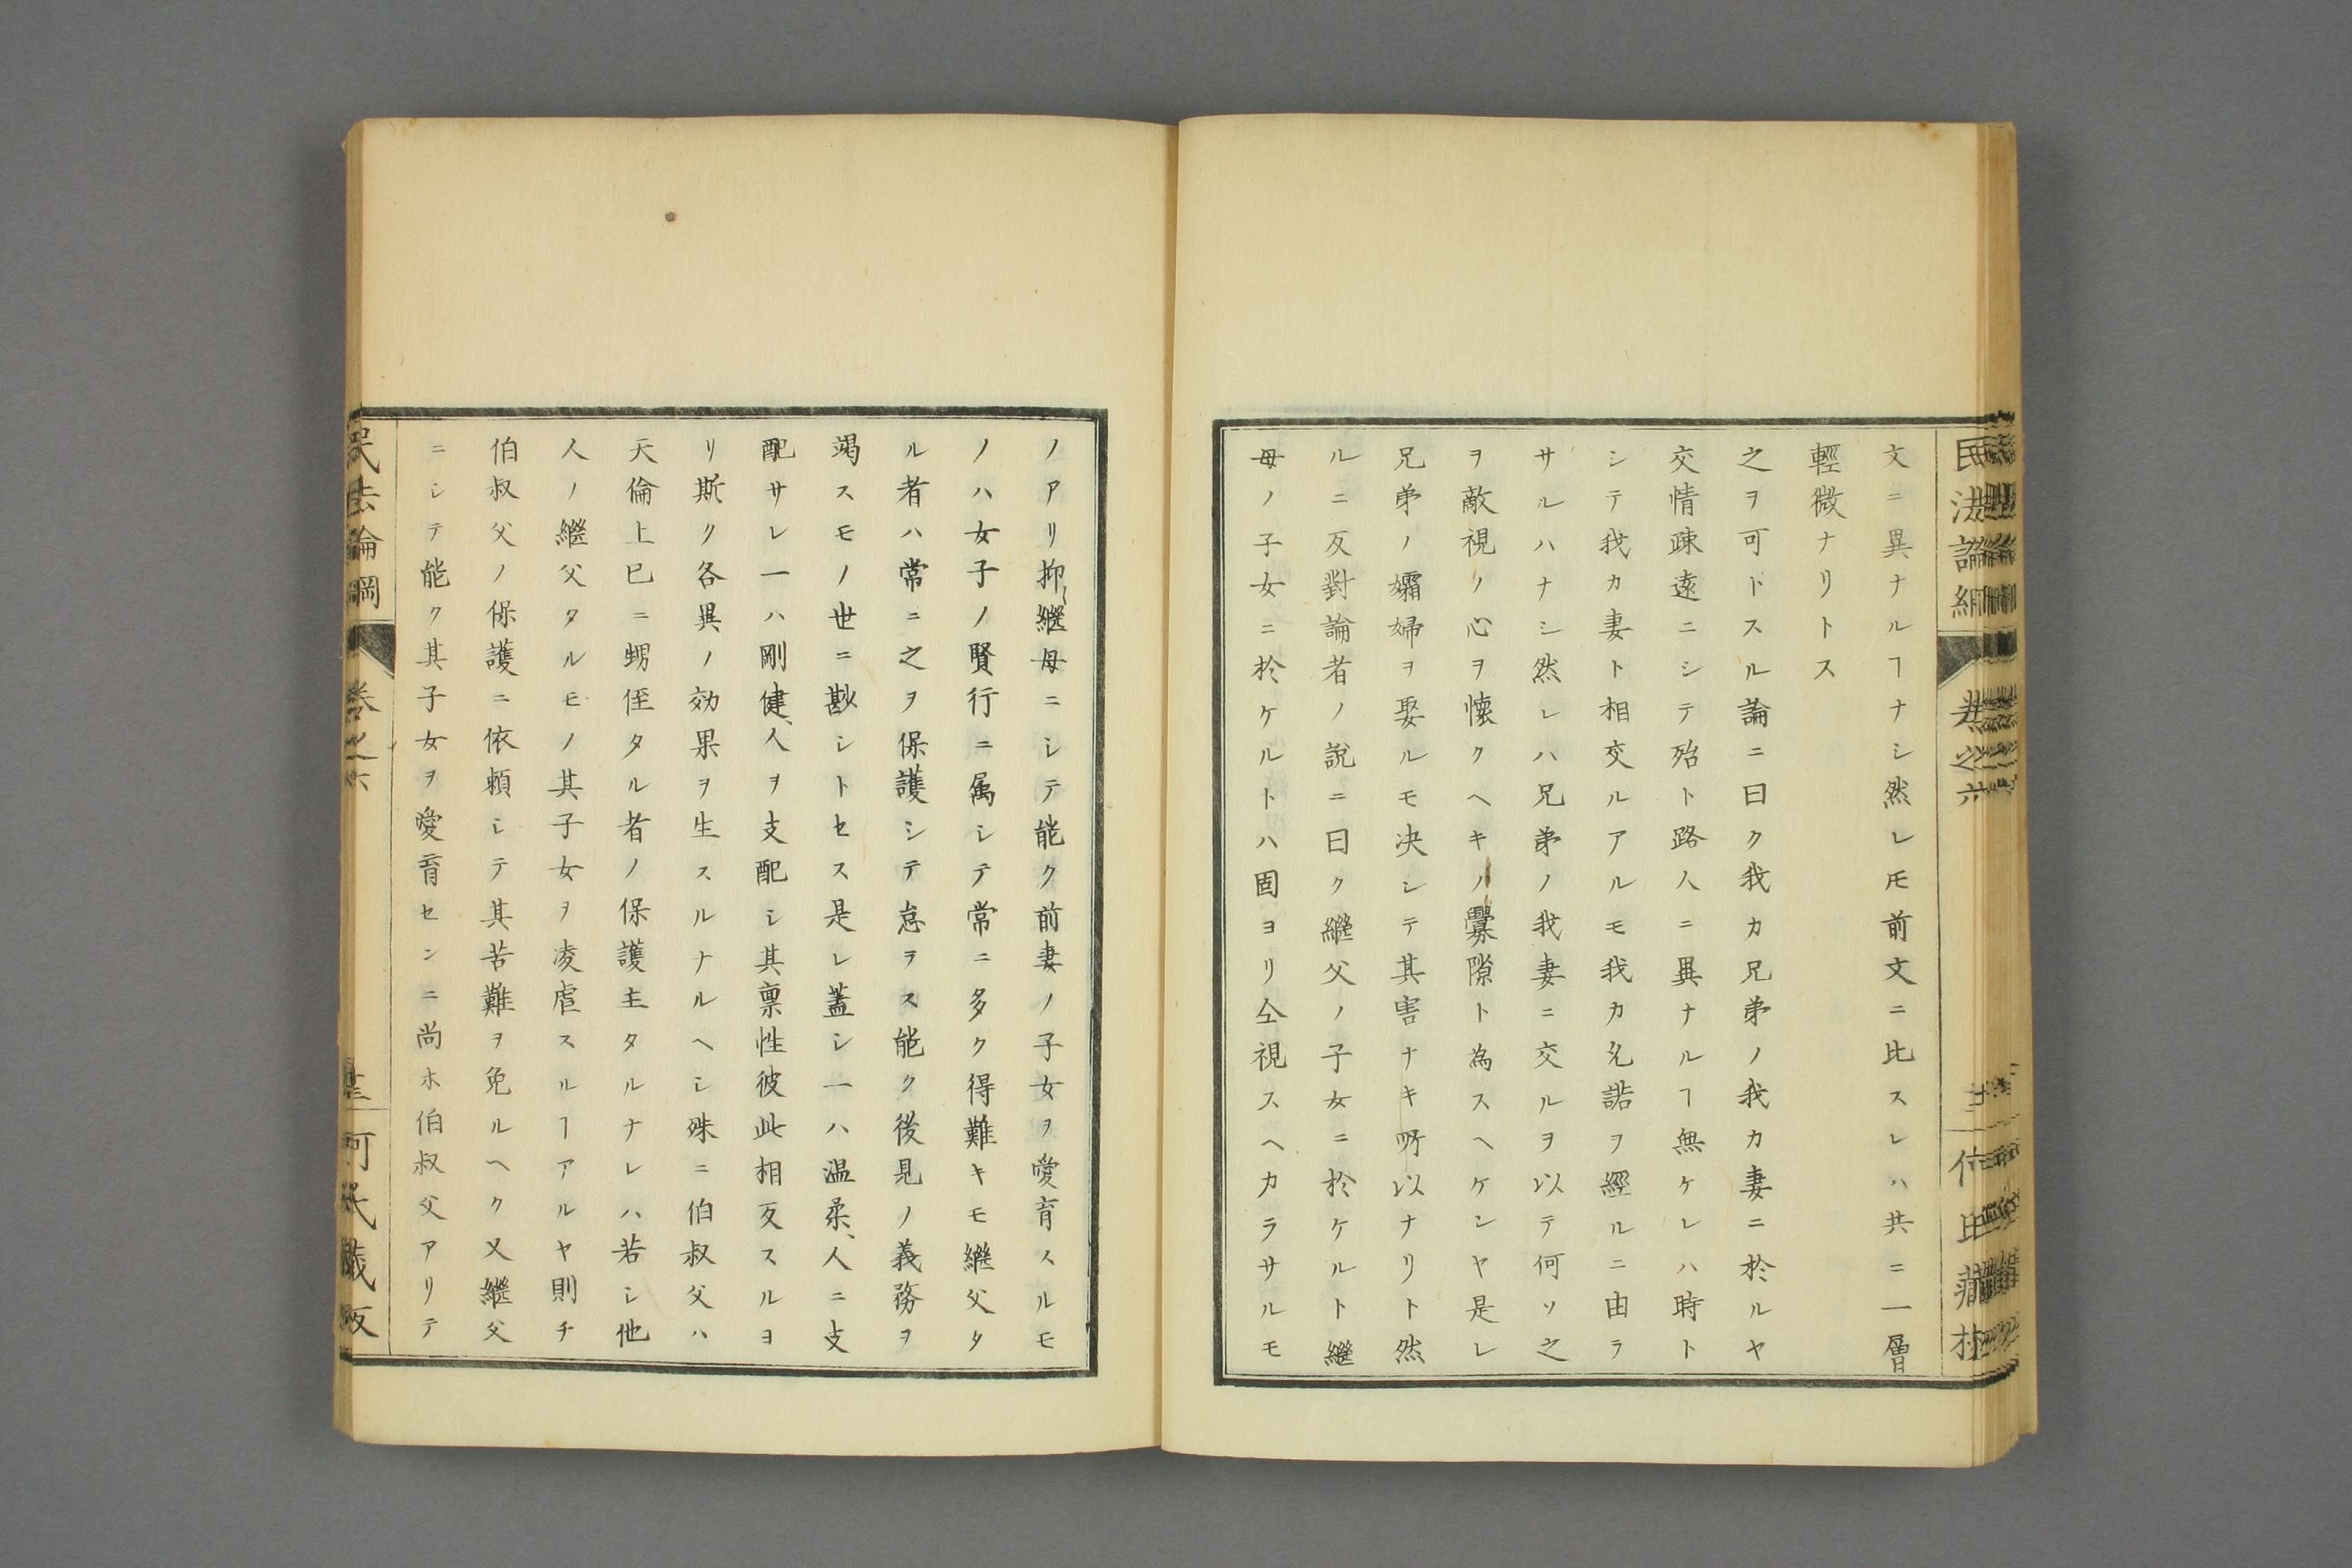 民法論綱
卷之六
文ニ異ナルヿナシ然レ𪜈前文ニ比スレハ共ニ一層
輕微ナリトス
之ヲ可トスル論ニ曰ク我カ兄弟ノ我カ妻ニ於ルヤ
交情疎遠ニシテ殆ト路人ニ異ナルヿ無ケレハ時ト
シテ我カ妻ト相交ルアルモ我カ允諾ヲ經ルニ由ラ
サルハナシ然レハ兄弟ノ我妻ニ交ルヲ以テ何ソ之
ヲ敵視ノ心ヲ懷クヘキノ釁隙ト為スヘケンヤ是レ
兄弟ノ孀婦ヲ娶ルモ决シテ其害ナキ所以ナリト然
ルニ反對論者ノ說ニ曰ク繼父ノ子女ニ於ケルト繼
母ノ子女ニ於ケルトハ固ヨリ仝視スヘカラサルモ
ノアリ抑〻繼母ニシテ能ク前妻ノ子女ヲ愛育スルモ
ノハ女子ノ賢行ニ属シテ常ニ多ク得難キモ繼父タ
ル者ハ常ニ之ヲ保護シテ怠ラス能ク後見ノ義務ヲ
竭スモノ世ニ尠シトセス是レ蓋シ一ハ温柔、人ニ支
配サレ一ハ剛健、人ヲ支配シ其禀性彼此相反スルヨ
リ斯ク各異ノ効果ヲ生スルナルヘシ殊ニ伯叔父ハ
天倫上已ニ甥侄タル者ノ保護主タルナレハ若シ他
人ノ繼父タルモノ其子女ヲ凌虐スルヿアルヤ則チ
伯叔父ノ保護ニ依頼シテ其苦難ヲ免ルヘク又繼父
ニシテ能ク其子女ヲ愛育センニ尚ホ伯叔父アリテ
民法論綱
卷之六
何氏藏版